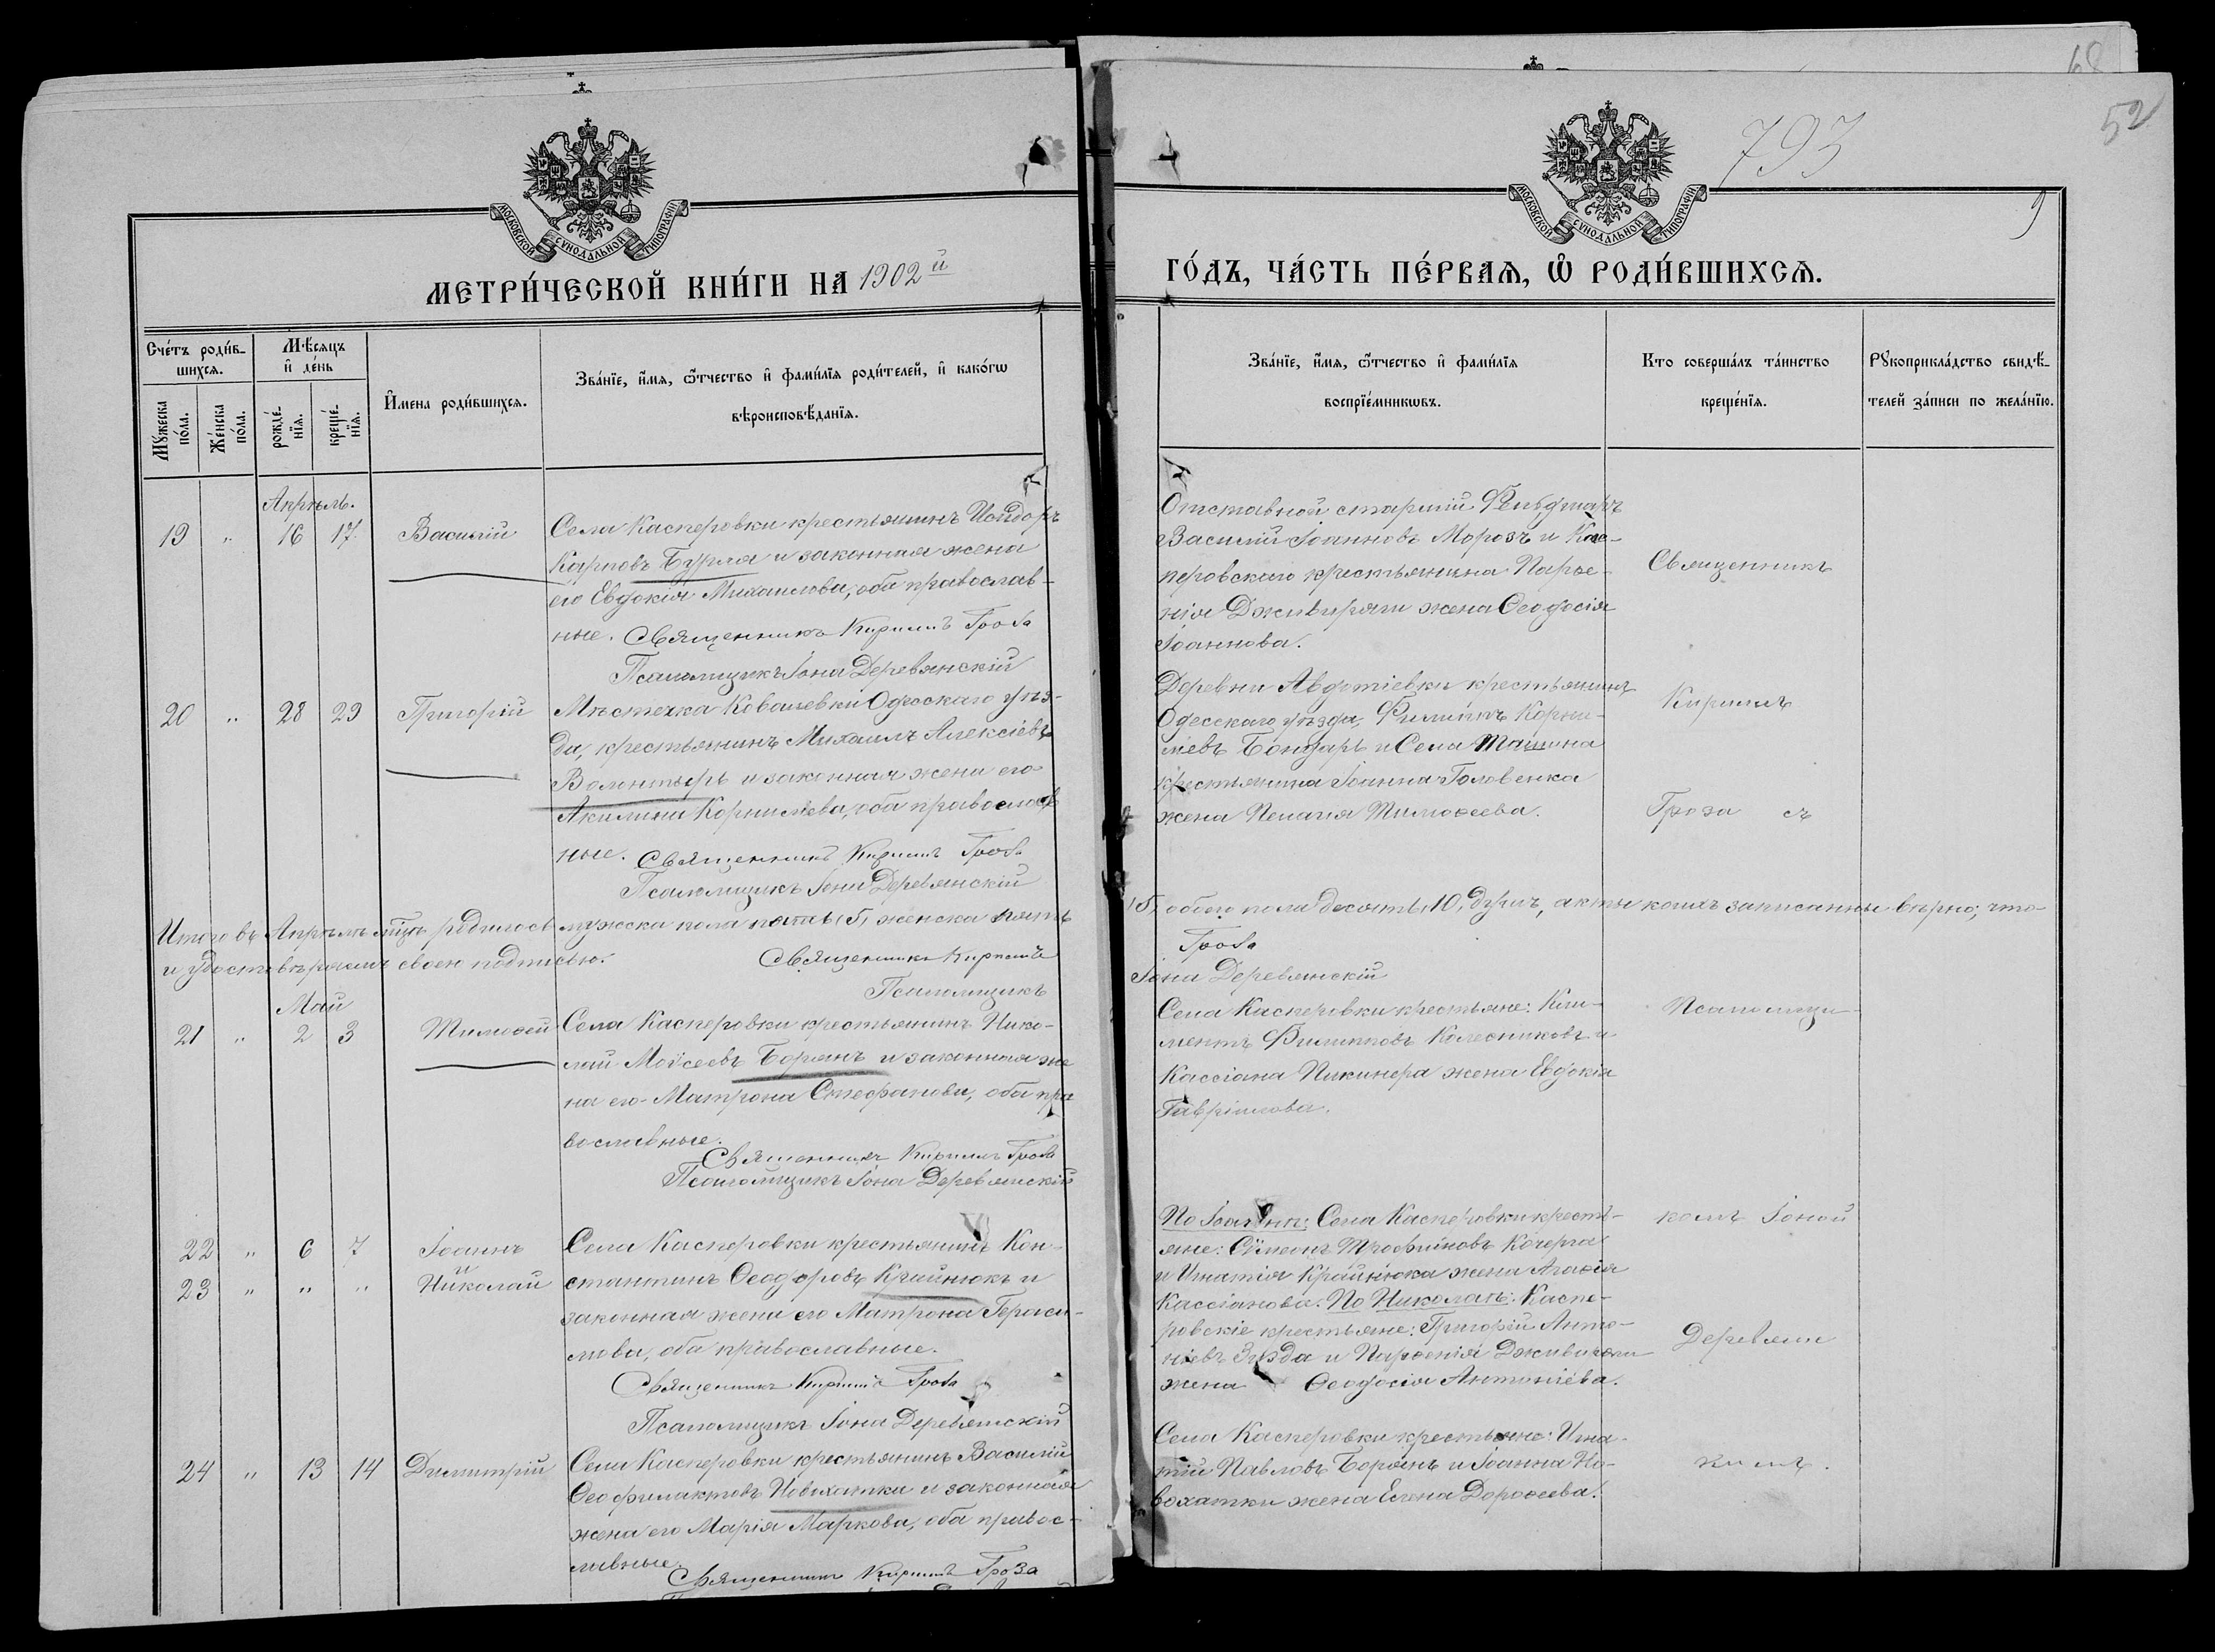 68
52
793
9
МОСКОВСКОЙ СУНОДАЛЬНОЙ ТИПОГРАФІИ
МОСКОВСКОЙ СУНОДАЛЬНОЙ ТИПОГРАФІИ
МЕТРИ́ЧЕСКОЙ КНИ́ГИ НА 1902й
ГО́ДЪ, ЧА́СТЬ ПЕ́РВАѦ, Ѽ РОДИ́ВШИХСѦ.
Сче́тъ роди́в-
шихсѧ.
Мѣ́сяцъ
и҆ де́нь
Мꙋ́жеска по́ла.
Же́нска по́ла.
рожде́-
нїѧ.
креще́-
нїѧ.
И҆мена роди́вшихсѧ.
Зва́нїе, и҆́мѧ, ѻ҆́тчество и҆ фами́лїѧ роди́телей, и҆ како́гѡ
вѣроисповѣ́данїѧ.
Зва́нїе, и҆́мѧ, ѻ҆́тчество и҆ фами́лїѧ
воспрїе́мникѡвъ.
Кто соверша́лъ та́инство
креще́нїѧ.
Рꙋкоприкла́дство свидѣ́-
телей за́писи по жела́нїю.
Апрѣль.
19 " 16 17 Василій
Села Касперовки крестьянинъ Исидоръ
Карповъ Бурла и законная жена
его Евдокія Михаилова, оба православ-
ные. Священникъ Кириллъ Гроза
Псаломщикъ Іона Деревянскій
Отставной старшій Фельдшеръ
Василій Іоанновъ Морозъ и Кас-
перовскаго крестьянина Парѳе-
нія Дживиряги жена Ѳеодосія
Іоаннова.
Священникъ
20 " 28 29 Григорій
Мѣстечка Ковалевки Одесскаго уѣз-
да, крестьянинъ Михаилъ Алексіевъ
Волонтырь и законная жена его
Акилина Корниліева, оба православ
ные. Священникъ Кириллъ Гроза
Псаломщикъ Іона Деревянскій
Деревни Авдотіевки крестьянинъ
Одесскаго уѣзда, Филиппъ Корни-
ліевъ Бондарь и Села Ташина
крестьянина Іоанна Головенка
жена Пелагія Тимоѳеева.
Кириллъ
Гроза съ
Итого въ Апрѣлѣ м-цѣ родилось мужска пола пять, 5, женска пять
, 5, обоего пола десять, 10, душъ, акты коихъ записанны вѣрно; что-
и удостовѣряемъ своею подписью. Священникъ Кириллъ
Гроза
Псаломщикъ
Іона Деревянскій
Май
21 " 2 3 Тимоѳей
Села Касперовки крестьянинъ Нико-
лай Моѵсеевъ Борянъ и законная же
на его Матрона Стефанова, оба пра
вославные.
Священникъ Кириллъ Гроза
Псаломщикъ Іона Деревянскій
Села Касперовки крестьяне: Кли-
ментъ Филипповъ Колесниковъ и
Кассіана Пикинера жена Евдокія
Гавріилова.
Псаломщи-
22 " 6 7 Іоаннъ
и
23 " " " Николай
Села Касперовки крестьянинъ Кон-
стантинъ Ѳеодоровъ Крайнюкъ и
законная жена его Матрона Гераси-
мова, оба православные.
Священникъ Кириллъ Гроза
Псаломщикъ Іона Деревянскій
По Іоаннѣ: Села Касперовки кресть-
яне: Сѵмеонъ Трофимовъ Кочерга
и Игнатія Крайнюка жена Агаѳія
Кассіанова. По Николаѣ: Каспе-
ровскіе крестьяне: Григорій Анто-
ніевъ и Парѳенія Дживиряги
жена Ѳеодосія Антоніева.
комъ Іоной
Деревянс
24 " 13 14 Димитрій
Села Касперовки крестьянинъ Василій
Ѳеофилактовъ Новохатка и законная
жена его Марія Маркова, оба правос-
лавные.
Священникъ Кириллъ Гроза
Села Касперовки крестьяне: Игна-
тій Павловъ Борянъ и Іоанна Но-
вохатки жена Елена Дороѳеева.
кимъ.